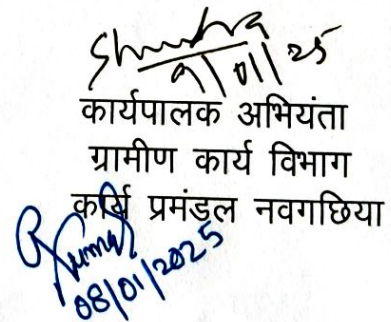 9/01/25
कार्यपालक अभियंता
ग्रामीण कार्य विभाग
कार्य प्रमंडल नवगछिया
Kumar
08/01/2025